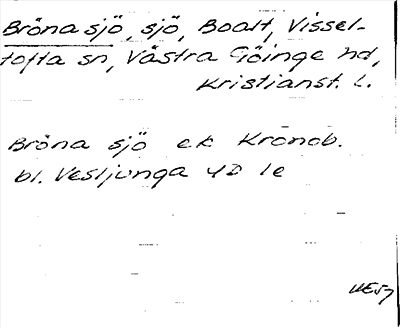 Bröna sjö, sjö, Boalt, Vissel-
tofta sn, Västra Göinge hd,
Kristianst. l.
Bröna sjö ek Kronob.
bl. Vesljunga 4D 1e